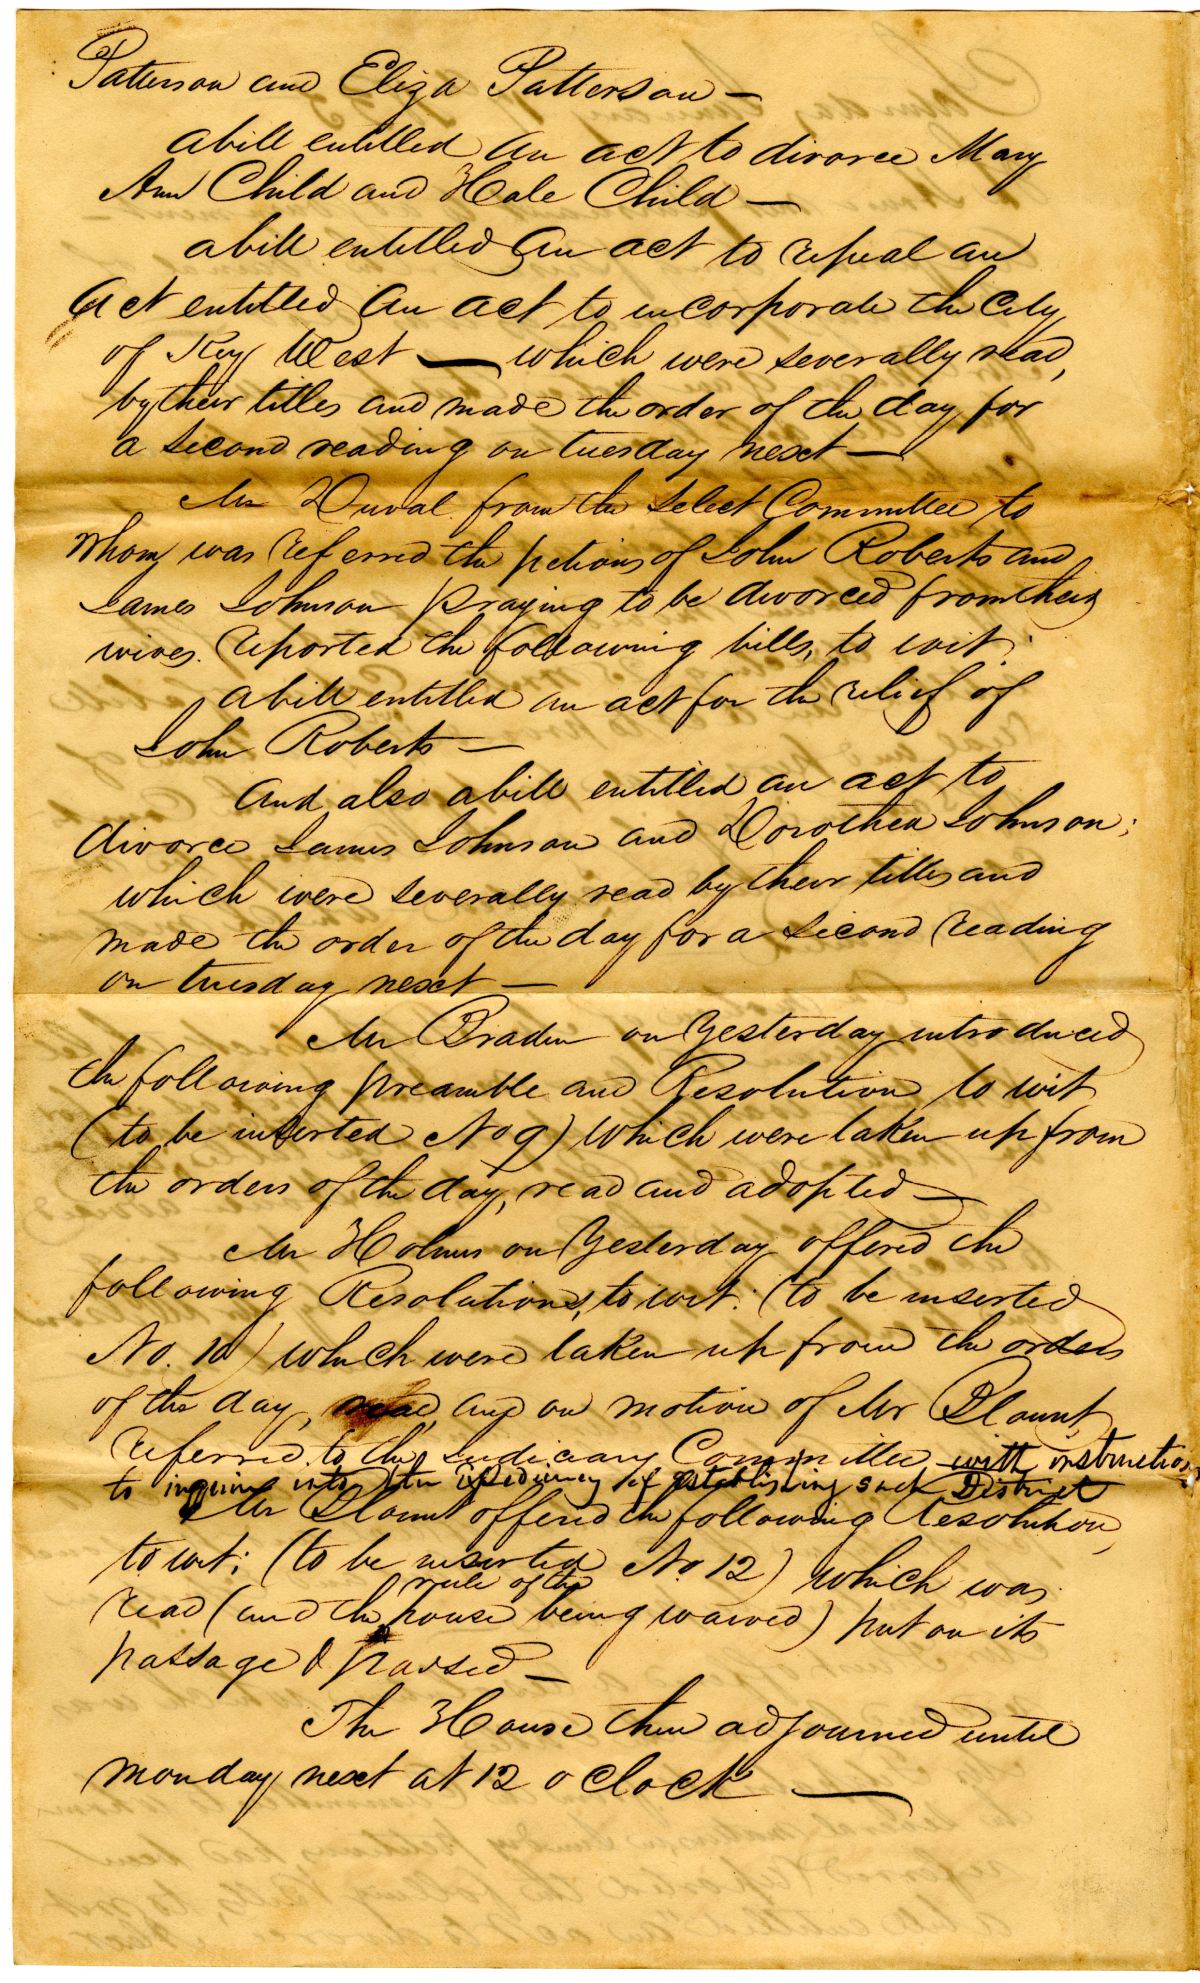 Patterson and Eliza Patterson —
a bill entitled an act to divorce Mary
Ann Child and Hale Child —
a bill entitled an act to repeal an
act entitled an act to incorporate the City
of Key West — which were severally read,
by their titles and made the order of the day for
a second reading on tuesday next —
Mr Duval from the Select Committee to
whom was referred the petions of John Roberts and
James Johnson praying to be divorced from their
wives. reported the following bills, to wit:
a bill entitled an act for the relief of
John Roberts —
And also a bill entitled an act to
divorce James Johnson and Dorothea Johnson;
which were severally read by their titles and
made the order of the day for a second reading
on tuesday next —
Mr Braden on Yesterday introduced
the following preamble and Resolution to wit
(to be inserted No 9) which were taken up from
the orders of the day, read and adopted —
Mr Holmes on Yesterday offered the
following Resolutions, to wit: (to be inserted
No. 10) which were taken up from the orders
of the day, read, and on motion of Mr Blount,
referred to the Judiciary Committee with instructions
to inquire into the expediency of establishing such District
Mr Blount offered the following Resolution,
to wit; (to be inserted No. 12) which was
rule of the
read (and the house being waived) put on its
passage & passed —
The House then adjourned until
monday next at 12 o Clock —